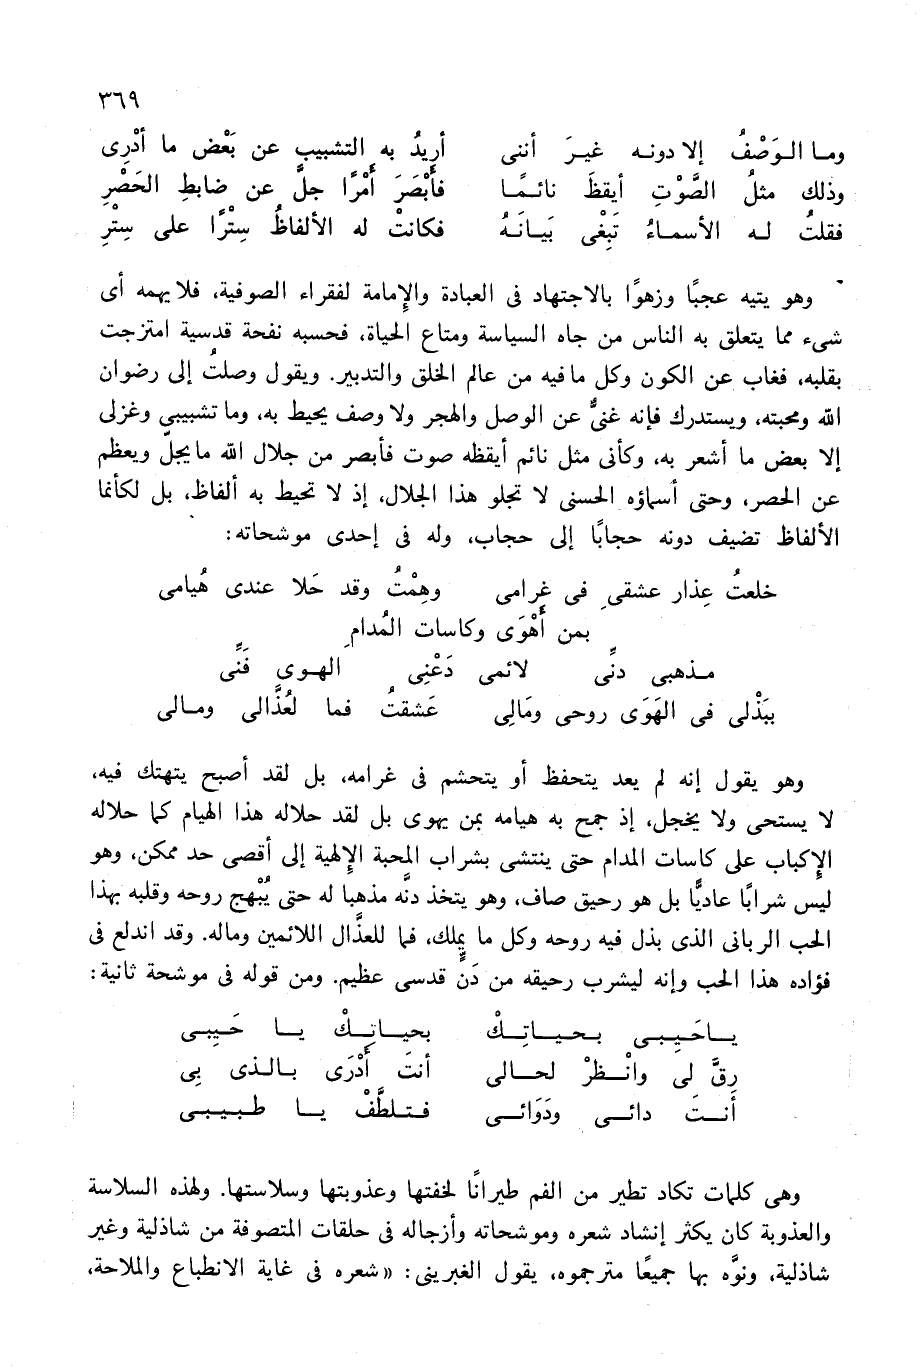 ٣٦٩
وما الوَصْفُ إلا دونه غيرَ أننى أريدُ به التشبيب عن بَعْض ما أدْرِى
وذلك مثلُ الصَّوْتِ أيقظَ نائمًا فأَبْصَرَ أَمْرًا جلَّ عن ضابطِ الحَصْرِ
فقلتُ له الأسماءُ تَبْغى بَيَانَهُ فكانتْ له الألفاظُ سِتْرًا على سِتْرِ
وهو يتيه عجبًا وزهوًا بالاجتهاد فى العبادة والإمامة لفقراء الصوفية، فلا يهمه أى
شىء مما يتعلق به الناس من جاه السياسة ومتاع الحياة، فحسبه نفحة قدسية امتزجت
بقلبه، فغاب عن الكون وكل ما فيه من عالم الخلق والتدبير. ويقول وصلتُ إلى رضوان
الله ومحبته، ويستدرك فإنه غنىٌّ عن الوصل والهجر ولا وصف يحيط به، وما تشبيبى وغزلى
إلا بعض ما أشعر به، وكأنى مثل نائم أيقظه صوت فأبصر من جلال الله ما يجلّ ويعظم
عن الحصر، وحتى أسماؤه الحسنى لا تجلو هذا الجلال، إذ لا تحيط به ألفاظ، بل لكأنما
الألفاظ تضيف دونه حجابًا إلى حجاب، وله فى إحدى موشحاته:
خلعتُ عِذار عشقى فى غرامى وهِمْتُ وقد حَلا عندى هُيامى
بمن أَهْوَى وكاسات المُدامِ
مذهبى دنِّى لائمى دَعْنِى الهوى فَنِّى
ببَذْلى فى الهَوَى روحى ومَالِى عَشقتُ فما لعُذَّالى ومالى
وهو يقول إنه لم يعد يتحفظ أو يتحشم فى غرامه، بل لقد أصبح يتهتك فيه،
لا يستحى ولا يخجل، إذ جمح به هيامه بمن يهوى بل لقد حلاله هذا الهيام كما حلاله
الإكباب على كاسات المدام حتى ينتشى بشراب المحبة الإلهية إلى أقصى حد ممكن، وهو
ليس شرابًا عاديًّا بل هو رحيق صاف، وهو يتخذ دنَّه مذهبا له حتى يُبْهج روحه وقلبه بهذا
الحب الربانى الذى بذل فيه روحه وكل ما يملك، فما للعذَّال اللائمين وماله. وقد اندلع فى
فؤاده هذا الحب وإنه ليشرب رحيقه من دَنٍّ قدسى عظيم. ومن قوله فى موشحة ثانية:
ياحَبِيبى بحياتِكْ بحياتِكْ يا حَبِيبى
رِقَّ لى وانْظرْ لحالى أنتَ أَدْرَى بالذى بِى
أَنتَ دائى ودَوَائى فتلطَّفْ يا طبيبى
وهى كلمات تكاد تطير من الفم طيرانًا لخفتها وعذوبتها وسلاستها. ولهذه السلاسة
والعذوبة كان يكثر إنشاد شعره وموشحاته وأزجاله فى حلقات المتصوفة من شاذلية وغير
شاذلية، ونوَّه بها جميعًا مترجموه، يقول الغبرينى: «شعره فى غاية الانطباع والملاحة،